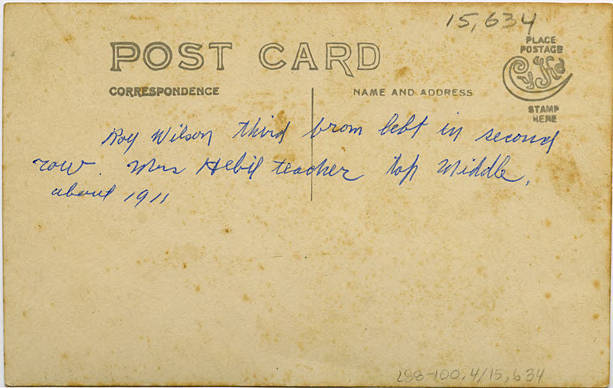 15,634
POST CARD
PLACE
POSTAGE
CORRESPONDENCE
NAME AND ADDRESS
STAMP
HERE
Roy Wilson third from left in second
row. Mrs teacher top middle,
about 1911
298-100.4/15,634